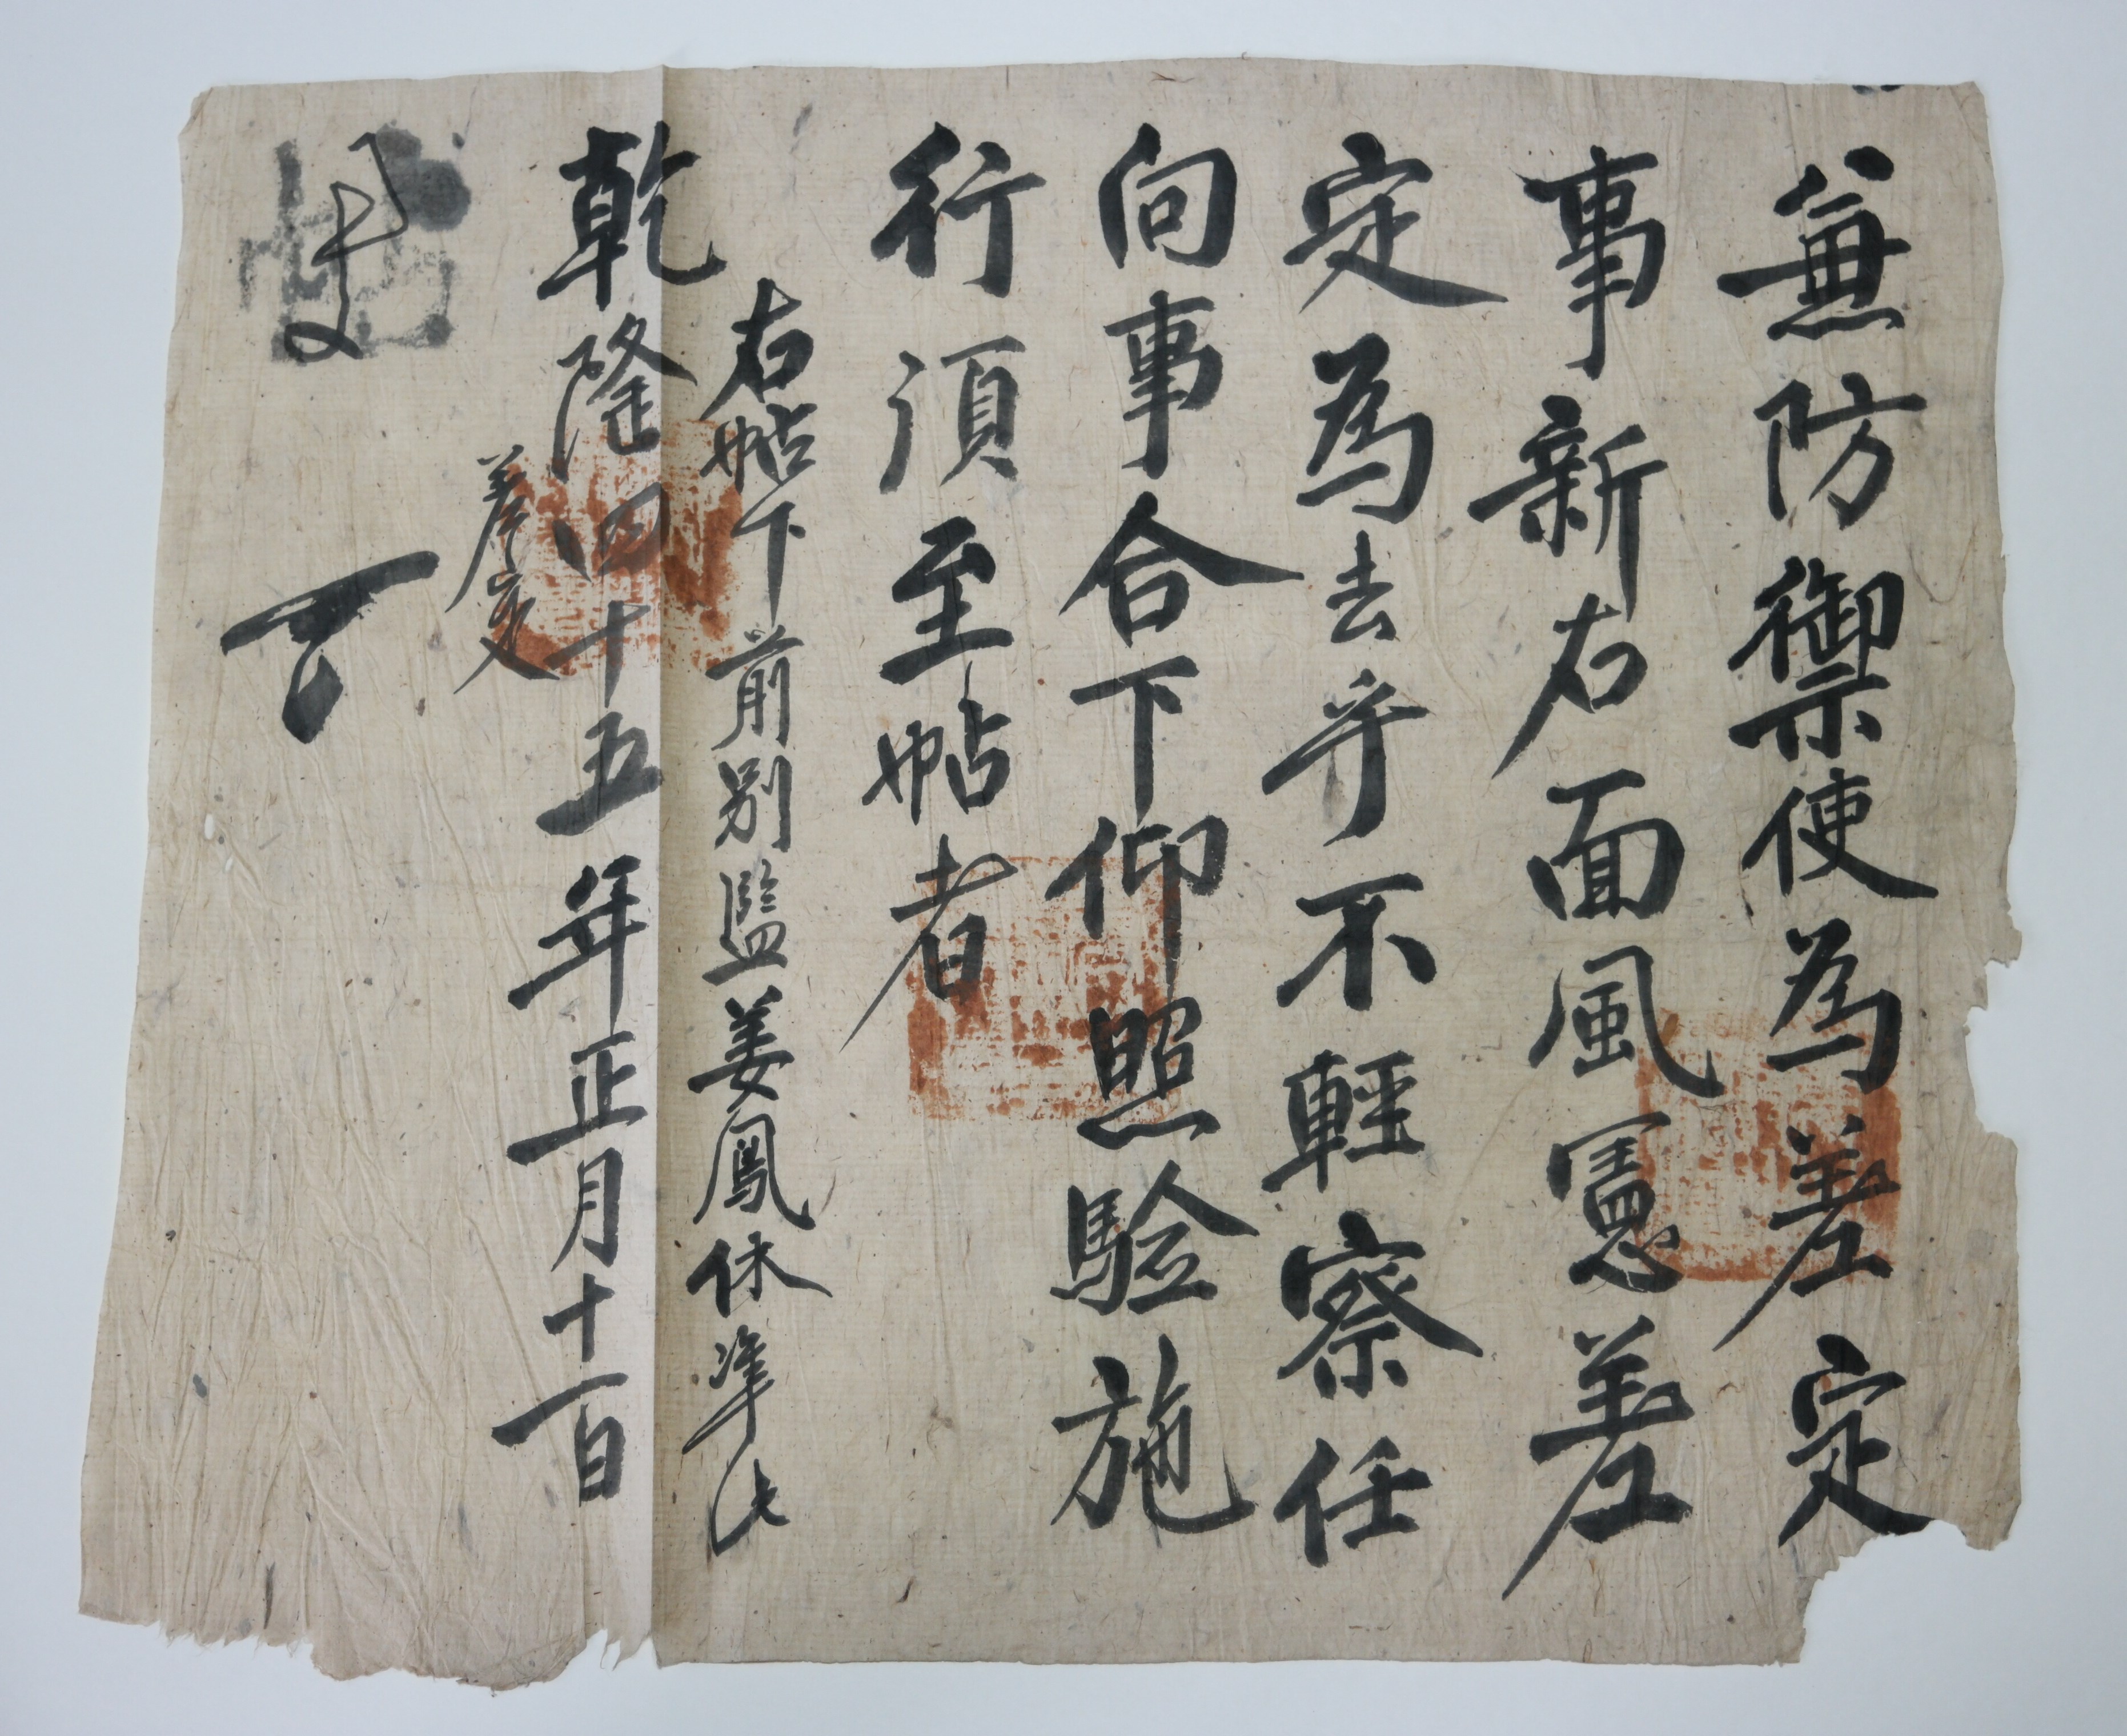 兼防禦使爲差定
事新右面風憲差
定爲去乎不輕察任
向事合下仰照驗施
行須至帖者
右帖下前別監姜鳳休準此
乾隆四十五年正月十一日
差定
使